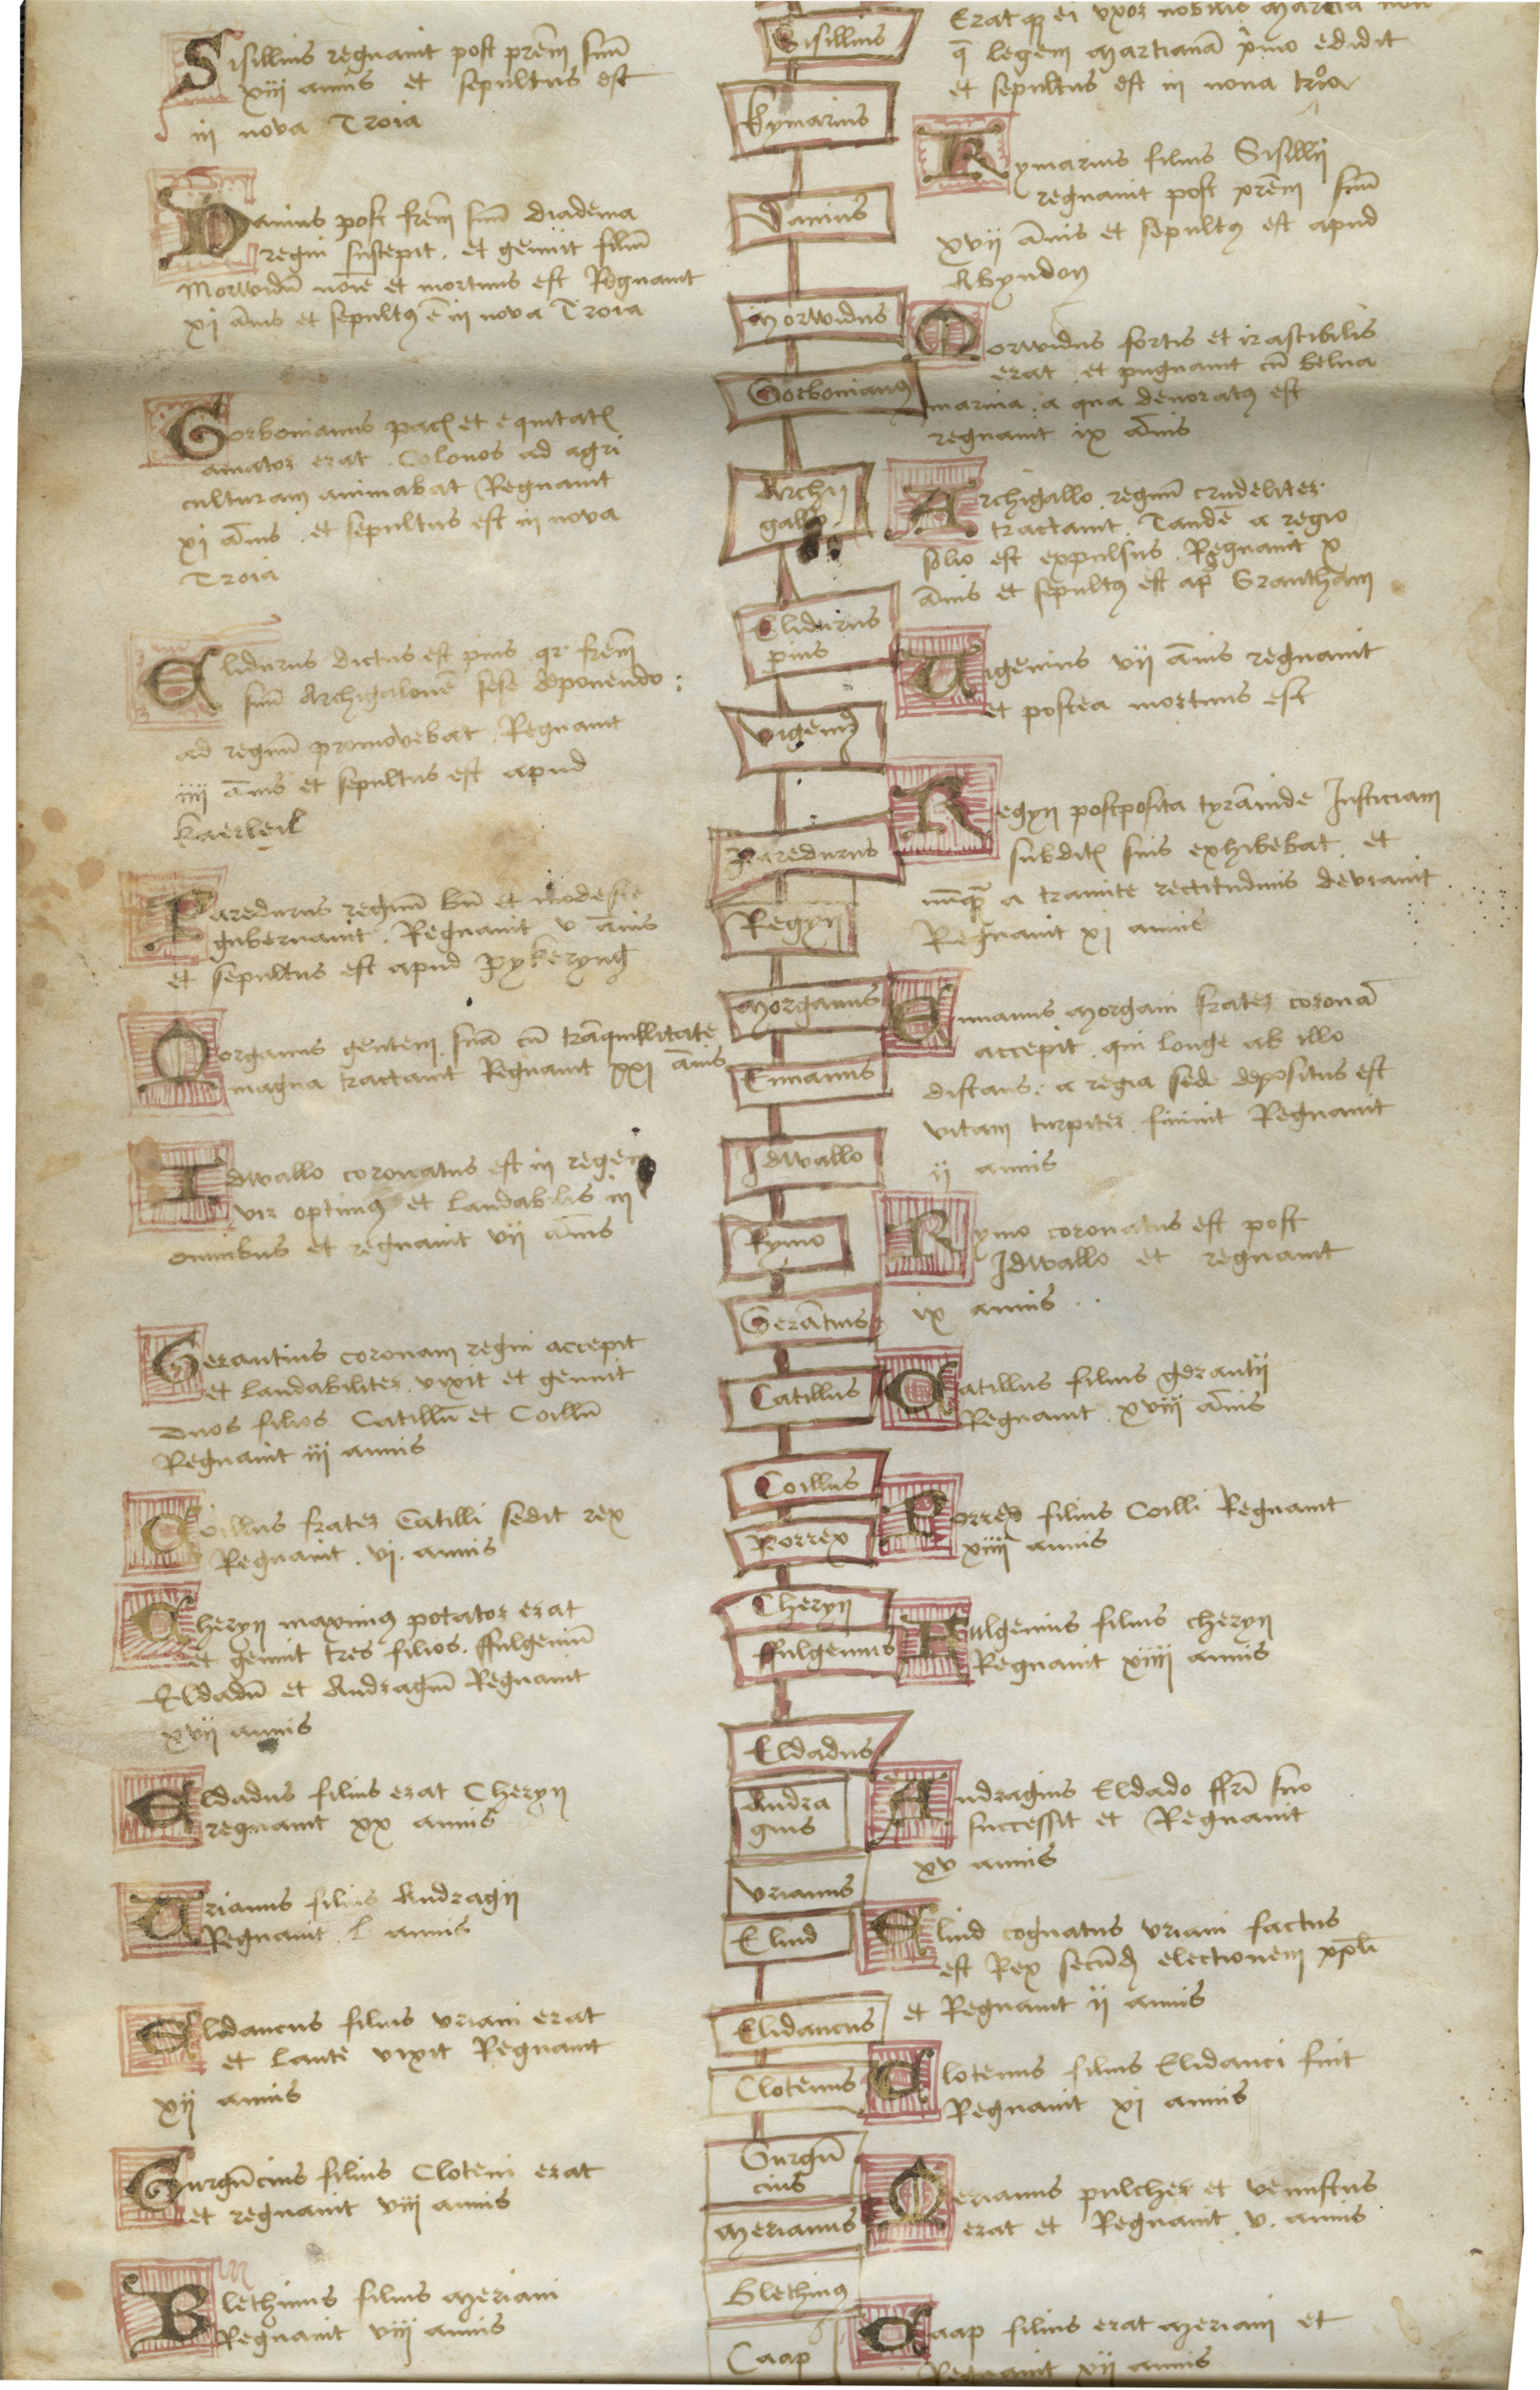 Sisillius regnauit post prēm suū
xiij annis et sepultus est
in nova Troia
Danius post frēm suū diadema
regni suscepit . et genuit filiū
Morwidū noīe et mortuus est Regnauit
xj ānis et sepultꝰ ē in nova Troia
Gorbonianus pacꝭ et equitatꝭ
amator erat . Colonos ad agri
culturam animabat Regnauit
xj ānis . et sepultus est in nova
Troia
Elidurus dictus est pius qr frēm
suū Archigalonē sese deponendo :
ad regnū promovebat . Regnauit
iiij ānis et sepultus est apud
Kaerleil
Paredurus regnū bn̄ et modeste
gubernauit . Regnauit v ānis
et sepultus est apud Pykeryng
Morganus gentem suā cū trāquillitate
magna tractauit Regnauit xxj ānis
Idwallo coronatus est in regem
vir optimꝰ et laudabilis in
omnibus et regnauit vij ānis
Gerantius coronam regni accepit
et laudabiliter vixit et genuit
duos filios Catillū et Coillū
Regnauit iij annis
Coillus frater Catilli sedit rex
Regnauit . vj . annis
Cheryn maximꝰ potator erat
et genuit tres filios . ffulgeniū
Eldadū et Andragiū Regnauit
xvij annis
Eldadus filius erat Cheryn
regnauit xx annis
Urianus filius Andragij
Regnauit . l annis
Elidaucus filius Vriani erat
et laute vixit Regnauit
xij annis
Gurgūcius filius Cloteni erat
et regnauit viij annis
Blethinus filius Meriani
Regnauit viij annis
Sisillius
Kymarius
Danius
Morwidus
Gorbonianꝰ
Archi
gallo
Elidurus
pius
Vigeniꝰ
Paredurus
Regyn
Morganus
Enuanus
Idwallo
Rymo
Gerātius
Catillus
Coillus
Porrex
Cheryn
ffulgenius
Eldadus
Andra
gius
Vrianus
Eliud
Elidaucus
Clotenus
Gurgū
cius
Merianus
Blethinꝰ
Caap
Erat qꝫ ei vxor nobilis Marcia
q̄ legem Martianā primo edidit
et sepultus est in nova troia
Kymarius filius Sisillij
regnauit post prēm suū
xvij ānis et sepultꝰ est apud
Abyndon
Morwidus fortis et irascibilis
erat . et pugnauit cū belua
marina . a qua devoratꝰ est
regnauit ix ānis
Archigallo regnū crudeliter
tractauit . Tandē a regio
solio est expulsus . Regnauit x
ānis et sepultꝰ est apᵈ Grantham
Uigenius vij ānis regnauit
et postea mortuus est
Regyn postposita tyrānide Justiciam
subditꝭ suis exhibebat . et
nūqꝫ a tramite rectitudinis deviauit
Regnauit xj annis
Enuanus Morgani frater coronā
accepit . qui longe ab illo
distans : a regia sede depositus est
vitam turpiter finiuit Regnauit
ij annis
Rymo coronatus est post
Idwallo et regnauit
ix annis
Catillus filius gerantij
Regnauit . xviij ānis
Porrex filius Coilli Regnauit
xiiij annis
Fulgenius filius cheryn
Regnauit xiiij annis
Andragius Eldado ffrī suo
successit et Regnauit
xv annis
Eliud cognatus Vriani factus
est Rex secūdꝫ electionem ppl̄i
et Regnauit ij annis
Clotenus filius Elidauci fuit
Regnauit xj annis
Merianus pulcher et venustus
erat et Regnauit . v . annis
Caap filius erat Meriani et
Regnauit xij annis